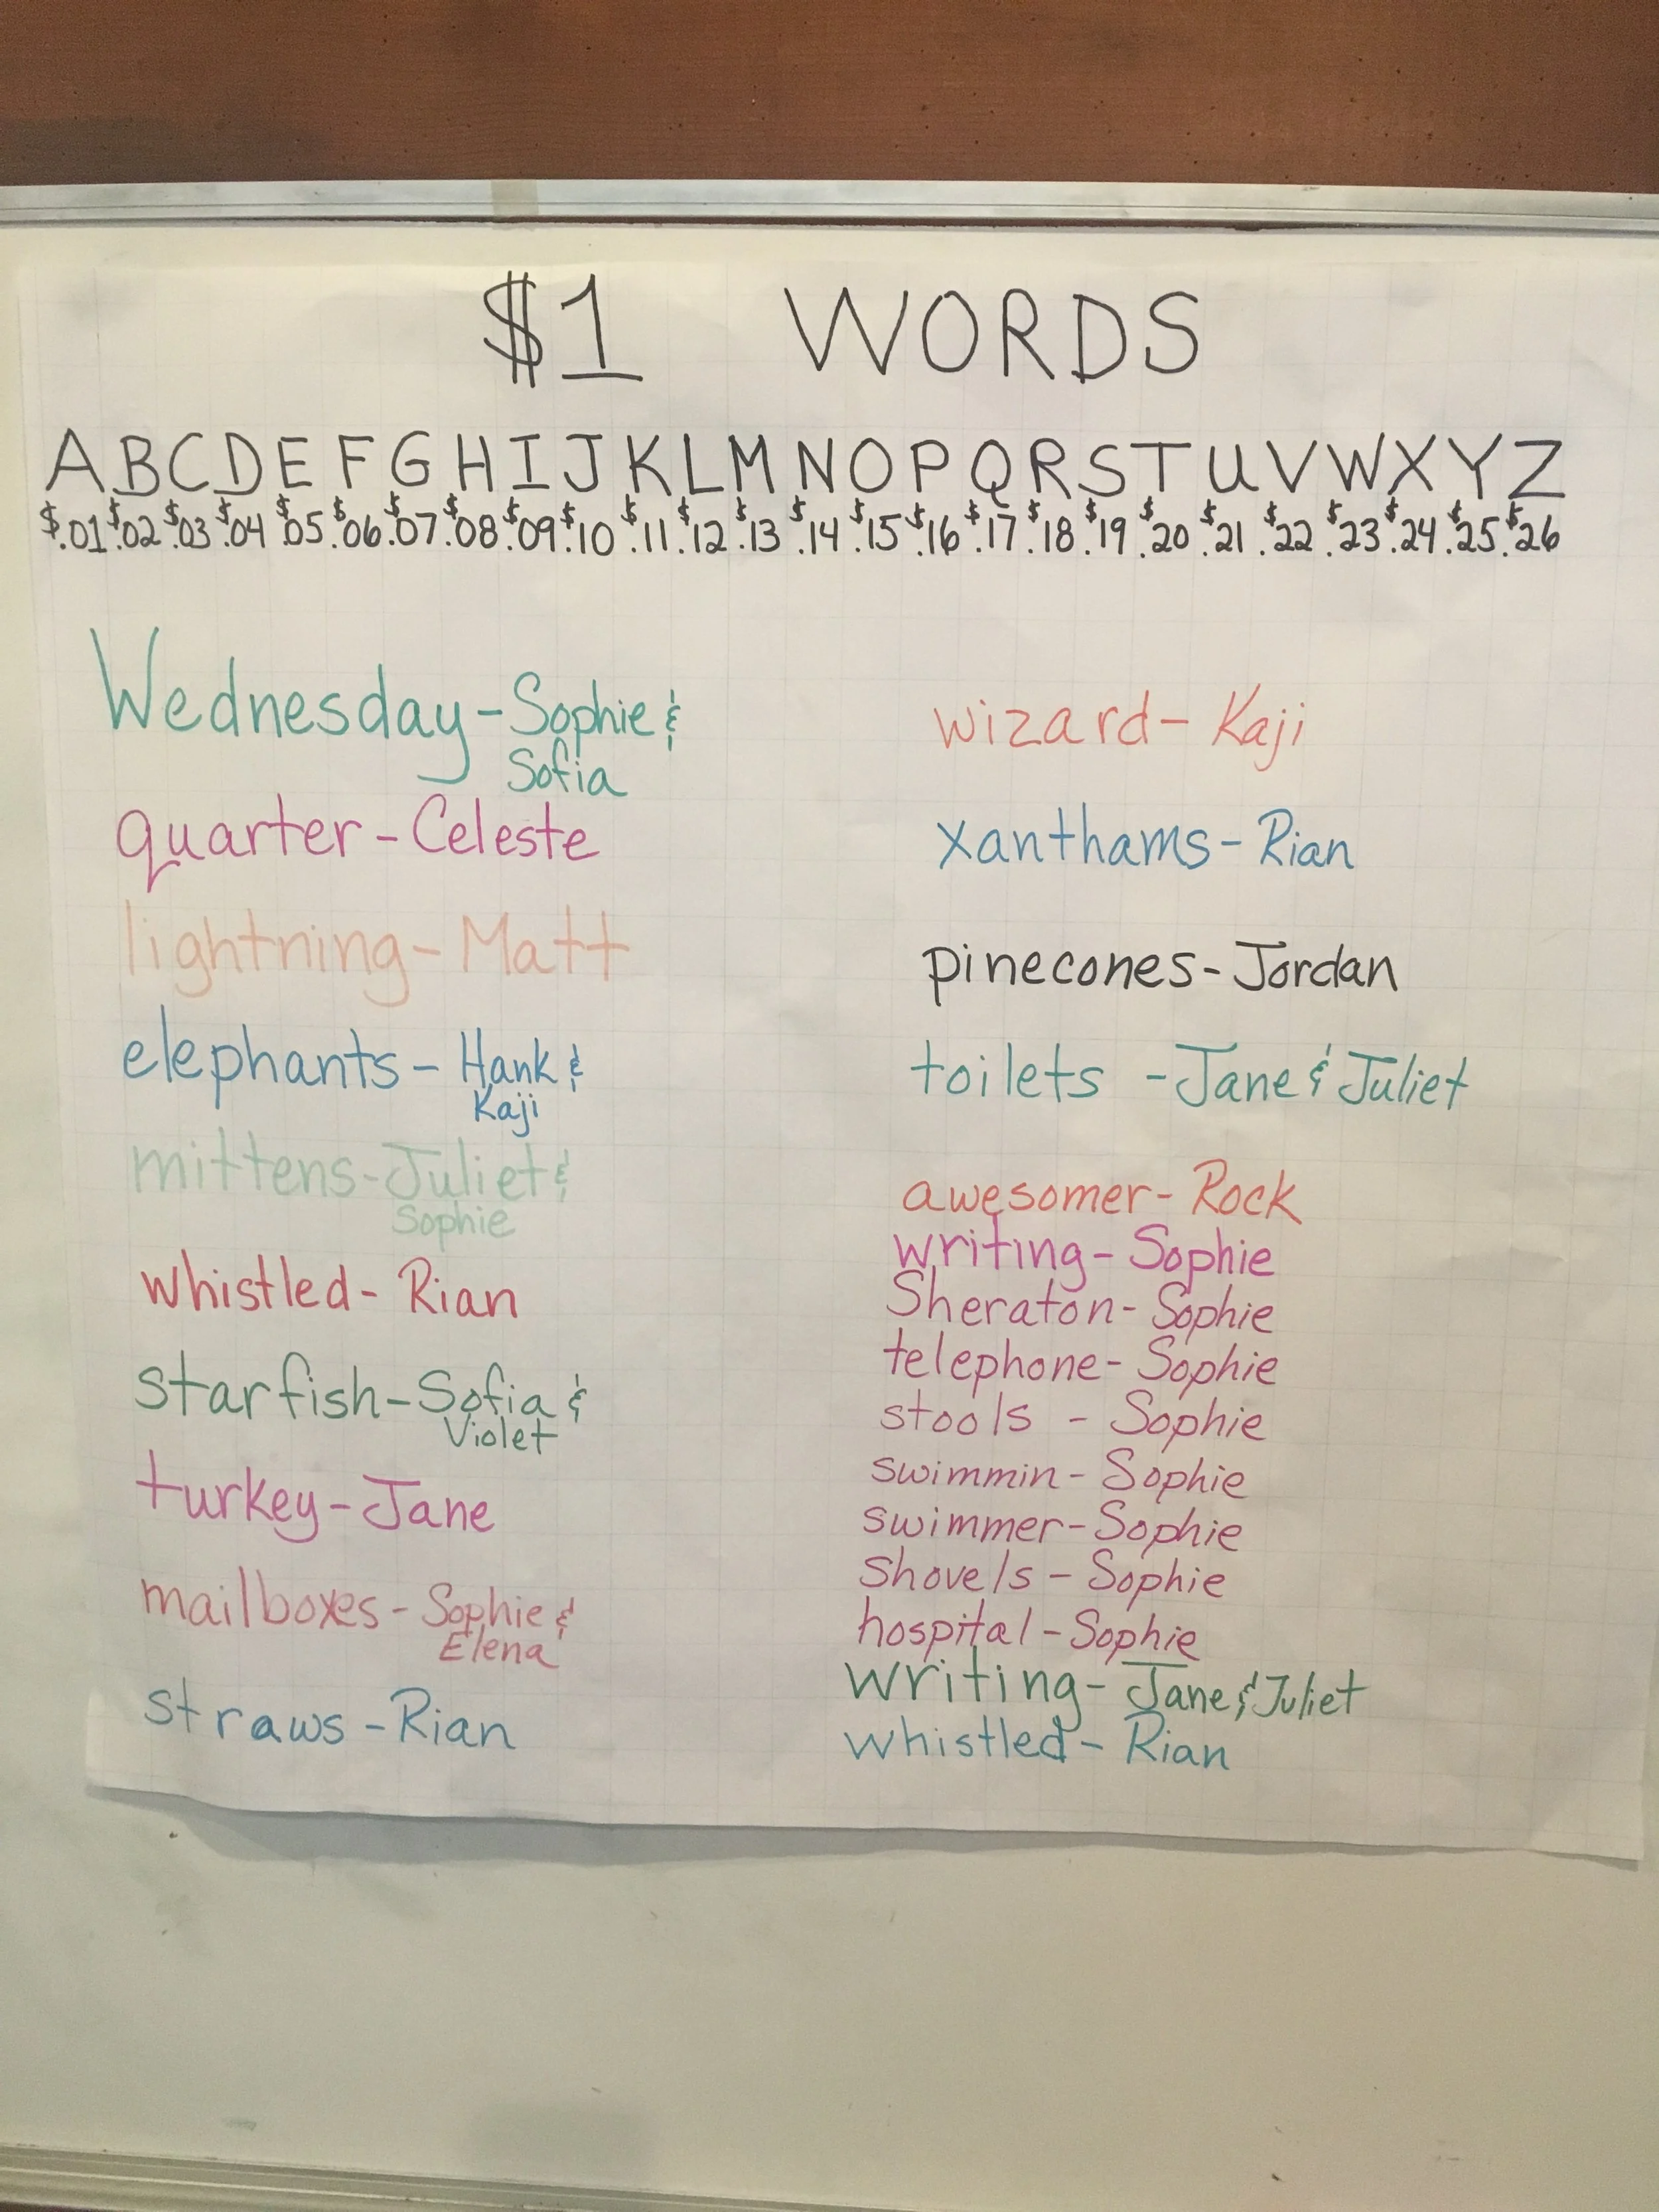 $1 WORDS
A B C D E F G H I J K L M N O P Q R S T U V W X Y Z
$.01 $.02 $.03 $.04 $.05 $.06 $.07 $.08 $.09 $.10 $.11 $.12 $.13 $.14 $.15 $.16 $.17 $.18 $.19 $.20 $.21 $.22 $.23 $.24 $.25 $.26
Wednesday - Sophie &
Sofia
quarter - Celeste
lightning - Matt
elephants - Hank &
Kaji
mittens - Juliet &
Sophie
whistled - Rian
starfish - Sofia &
Violet
turkey - Jane
mailboxes - Sophie &
Elena
straws - Rian
wizard - Kaji
xanthams - Rian
pinecones - Jordan
toilets - Jane & Juliet
awesomer - Rock
writing - Sophie
Sheraton - Sophie
telephone - Sophie
stools - Sophie
swimmin - Sophie
swimmer - Sophie
shovels - Sophie
hospital - Sophie
writing - Jane & Juliet
whistled - Rian